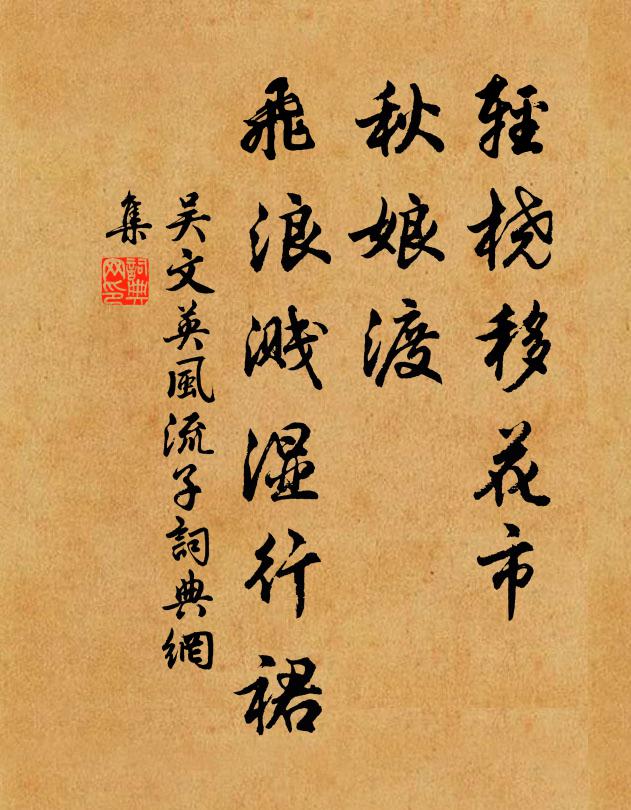 輕桡移花市
秋娘渡
飛浪溅湿行裙
吴文英風流子詞典網
集
詞典网印